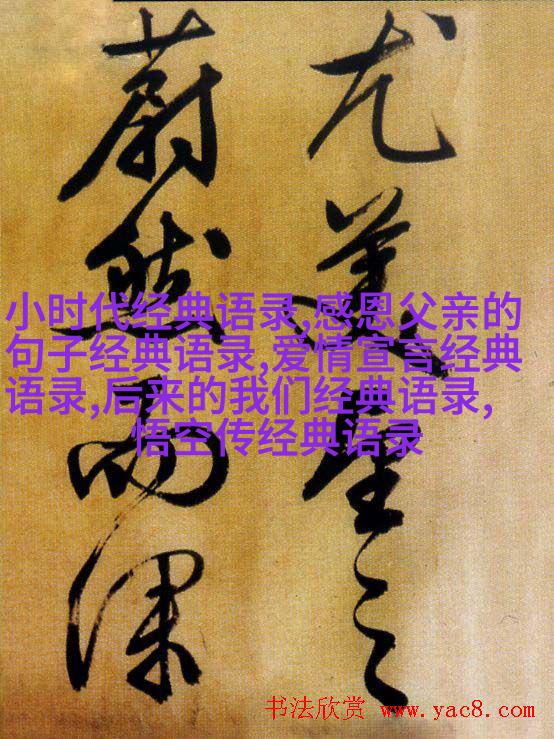 尤美望之
蔚然而深
小时代经典语录,感恩父亲的
句子经典语录,爱情宣言经典
语录,后来的我们经典语录,
悟空传经典语录
书法欣赏 www.yac8.com